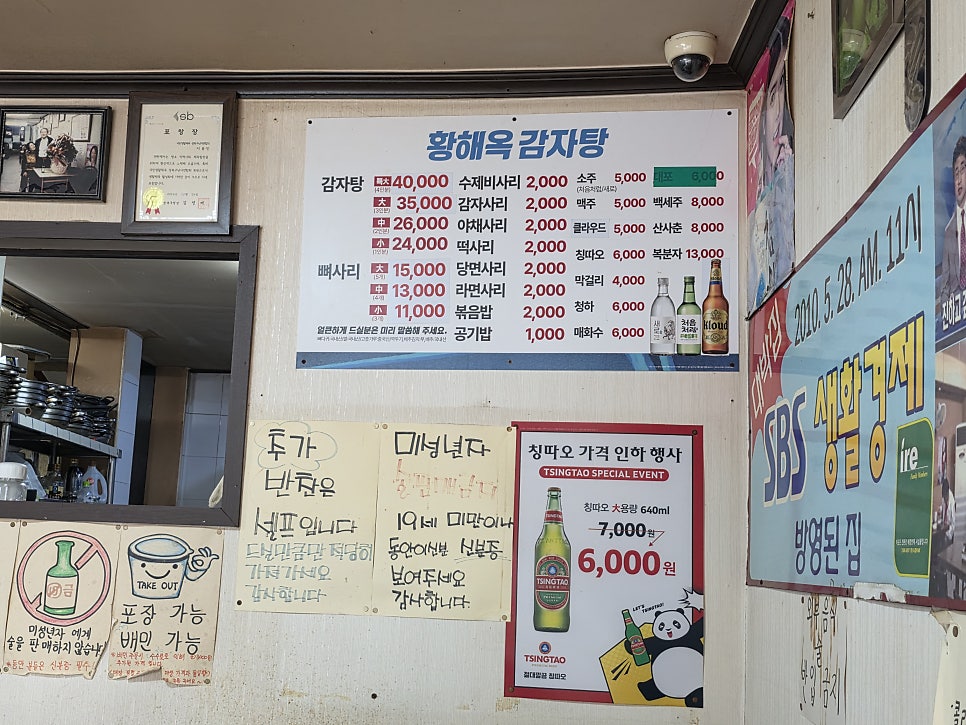 표 창 장
황해옥 감자탕
감자탕 特大 40,000
(4인분)
大 35,000
(3인분)
中 26,000
(2인분)
小 24,000
(1인분)
뼈사리 大 15,000
(5개)
中 13,000
(4개)
小 11,000
(3개)
얼큰하게 드실분은 미리 말씀해 주세요.
수제비사리 2,000
감자사리 2,000
야채사리 2,000
떡사리 2,000
당면사리 2,000
라면사리 2,000
볶음밥 2,000
공기밥 1,000
소주 5,000
(처음처럼/새로)
맥주 5,000
클라우드 5,000
칭따오 6,000
막걸리 4,000
청하 6,000
매화수 6,000
대포 6,000
백세주 8,000
산사춘 8,000
복분자 13,000
처음처럼
Kloud
추가
반찬은
셀프입니다
드실만큼만 적당히
가져가세요
감사합니다
미성년자
19세 미만이나
동안이신분 신분증
보여주세요
감사합니다.
칭따오 가격 인하 행사
TSINGTAO SPECIAL EVENT
칭따오 大용량 640ml
7,000원
6,000원
TSINGTAO
LET'S TSINGTAO!
TSINGTAO
절대깔끔 칭따오
미성년자 에게
술을 판매하지 않습니다
TAKE OUT
포장 가능
배민 가능
2010. 5. 28. AM. 11시
대박집
SBS 생활경제
방영된 집
íre